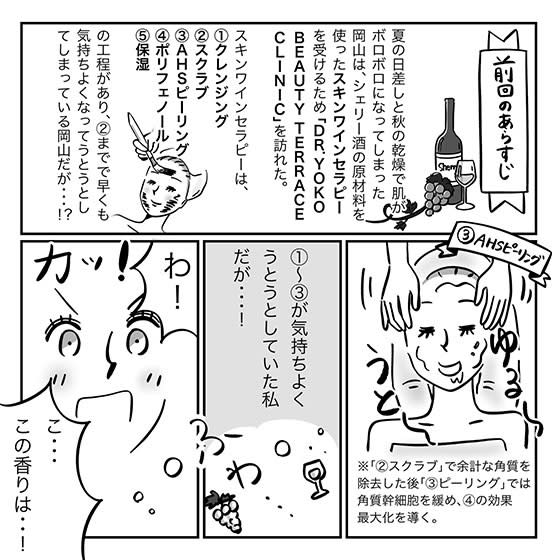 前回のあらすじ
夏の日差しと秋の乾燥で肌が
ボロボロになってしまった
岡山は、シェリー酒の原材料を
使ったスキンワインセラピー
を受けるため「DR.YOKO
BEAUTY TERRACE
CLINIC」を訪れた。
Sherry
スキンワインセラピーは、
①クレンジング
②スクラブ
③AHSピーリング
④ポリフェノール
⑤保湿
の工程があり、②までで早くも
気持ちよくなってうとうとし
てしまっている岡山だが・・・!?
③AHSピーリング
ゆるっ
うと
※「②スクラブ」で余計な角質を
除去した後「③ピーリング」では
角質幹細胞を緩め、④の効果
最大化を導く。
①〜③が気持ちよく
うとうとしていた私
だが・・・!
ふわ
わ!
カッ!
こ・・・
この香りは・・・!